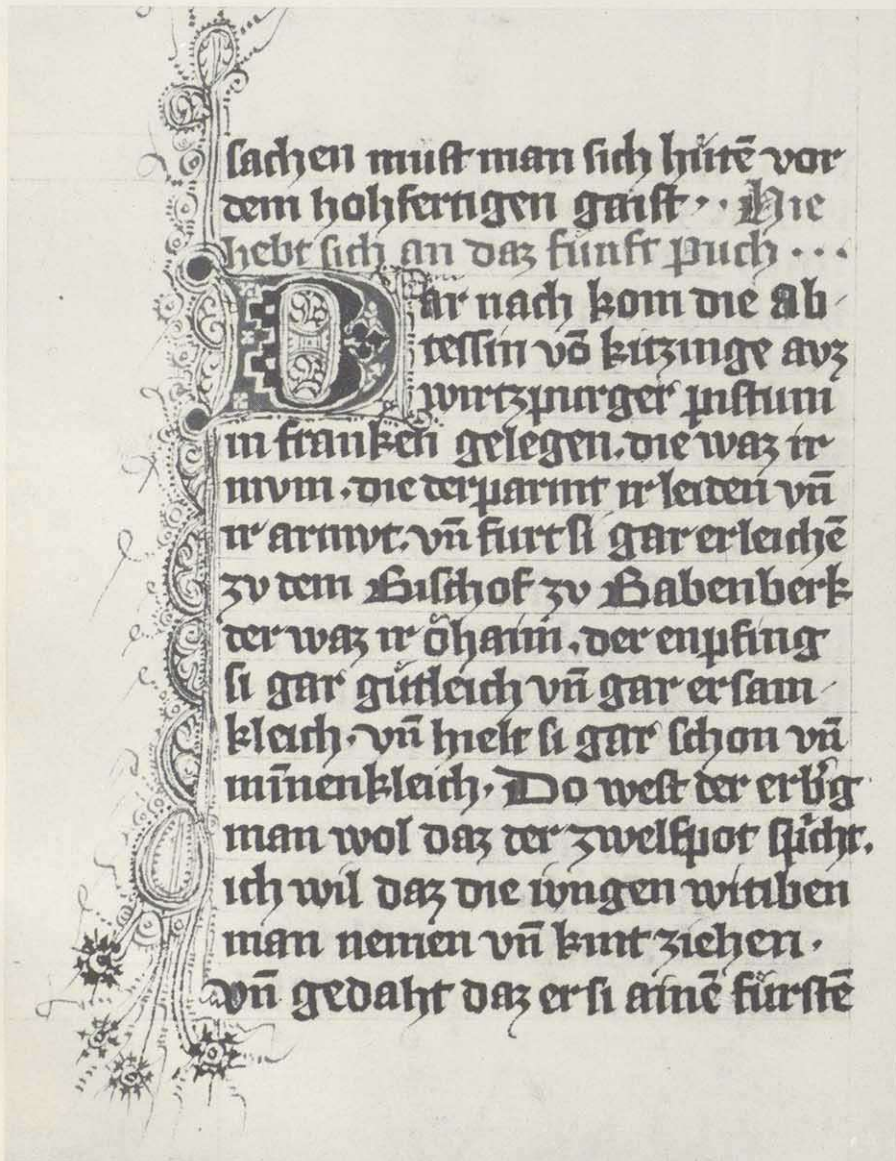 sachen must man sich hůtē vor
dem hohfertigen gaist ·· Hie
hebt sich an daz funft puch ···
Dar nach kom die ab
tessin vō kitzinge avz
wirtzpurger pistum
in franken gelegen. die waz ir
mvm. die derparmt ir leiden vn̄
ir armvt. vn̄ furt si gar erleichē
zv dem Bischof zv Babenberk
der waz ir ŏhaim. der enpfing
si gar gůtleich vn̄ gar ersam
kleich. vn̄ hielt si gar schon vn̄
mīnenkleich. Do west der erb'g
man wol daz der zwelfpot spicht.
ich wil daz die ivngen witiben
man nemen vn̄ kint ziehen.
vn̄ gedaht daz er si ainē fůrstē